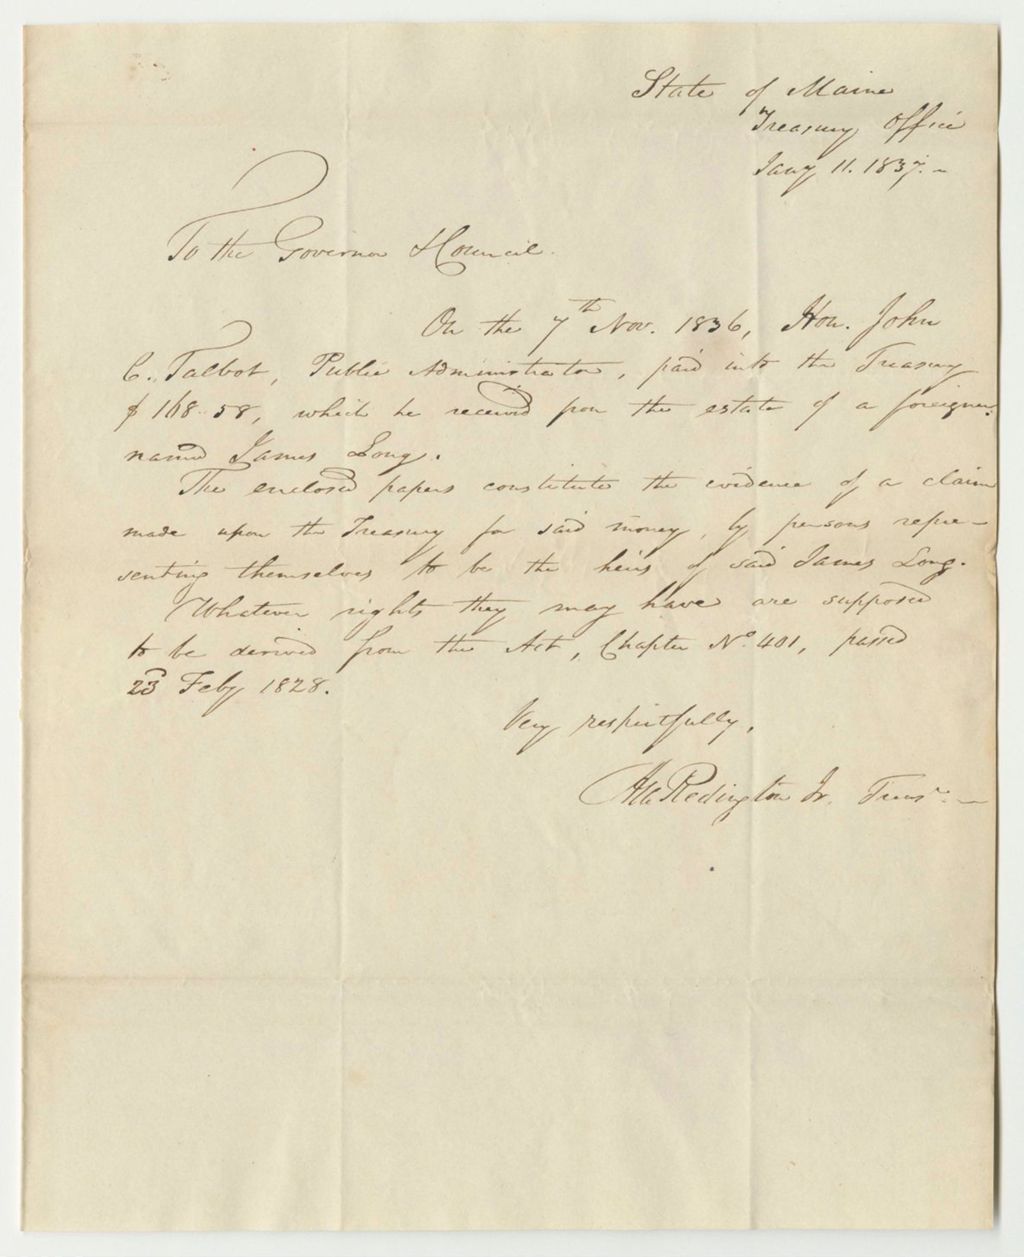 State of Maine
Treasury Office
Jany 11. 1837.
To the Governor & Council.
On the 7th Nov. 1836, Hon. John
C. Talbot, Public Administrator, paid into the Treasury
$168.58, which he received from the estate of a foreigner
named James Long.
The enclosed papers constitute the evidence of a claim
made upon the Treasury for said money, by persons repre-
senting themselves to be the heirs of said James Long.
Whatever rights they may have are supposed
to be derived from the Act, Chapter No. 401, passed
23d Feby 1828.
Very respectfully,
Asa Redington Jr. Treasr.